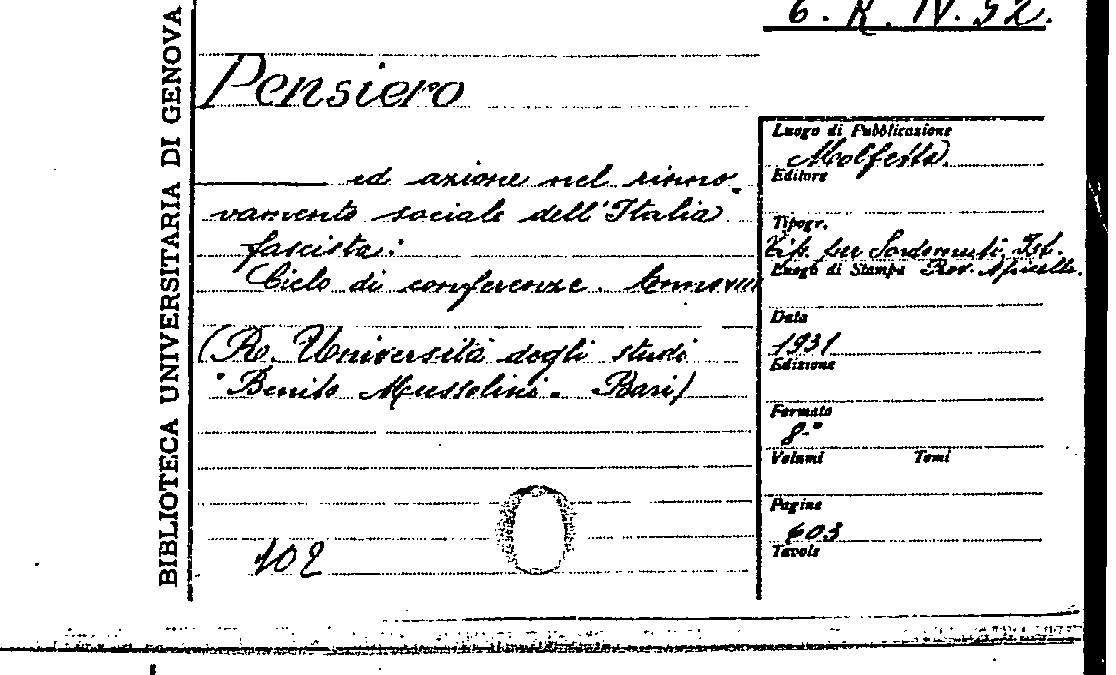 6. R. IV. 52.
BIBLIOTECA UNIVERSITARIA DI GENOVA
Pensiero
——— ed azione nel rinno-
vamento sociale dell'Italia
fascista:
Ciclo di conferenze. Anno VIII
(R. Università degli studi
"Benito Mussolini". Bari)
102
Luogo di Pubblicazione
Molfetta
Editore
Tipogr.
Tip. per Sordomuti, Ist.
Luogo di Stampa Prov. Apicella.
Data
1931
Edizione
Formato
8-°
Volumi Tomi
Pagine
603
Tavole